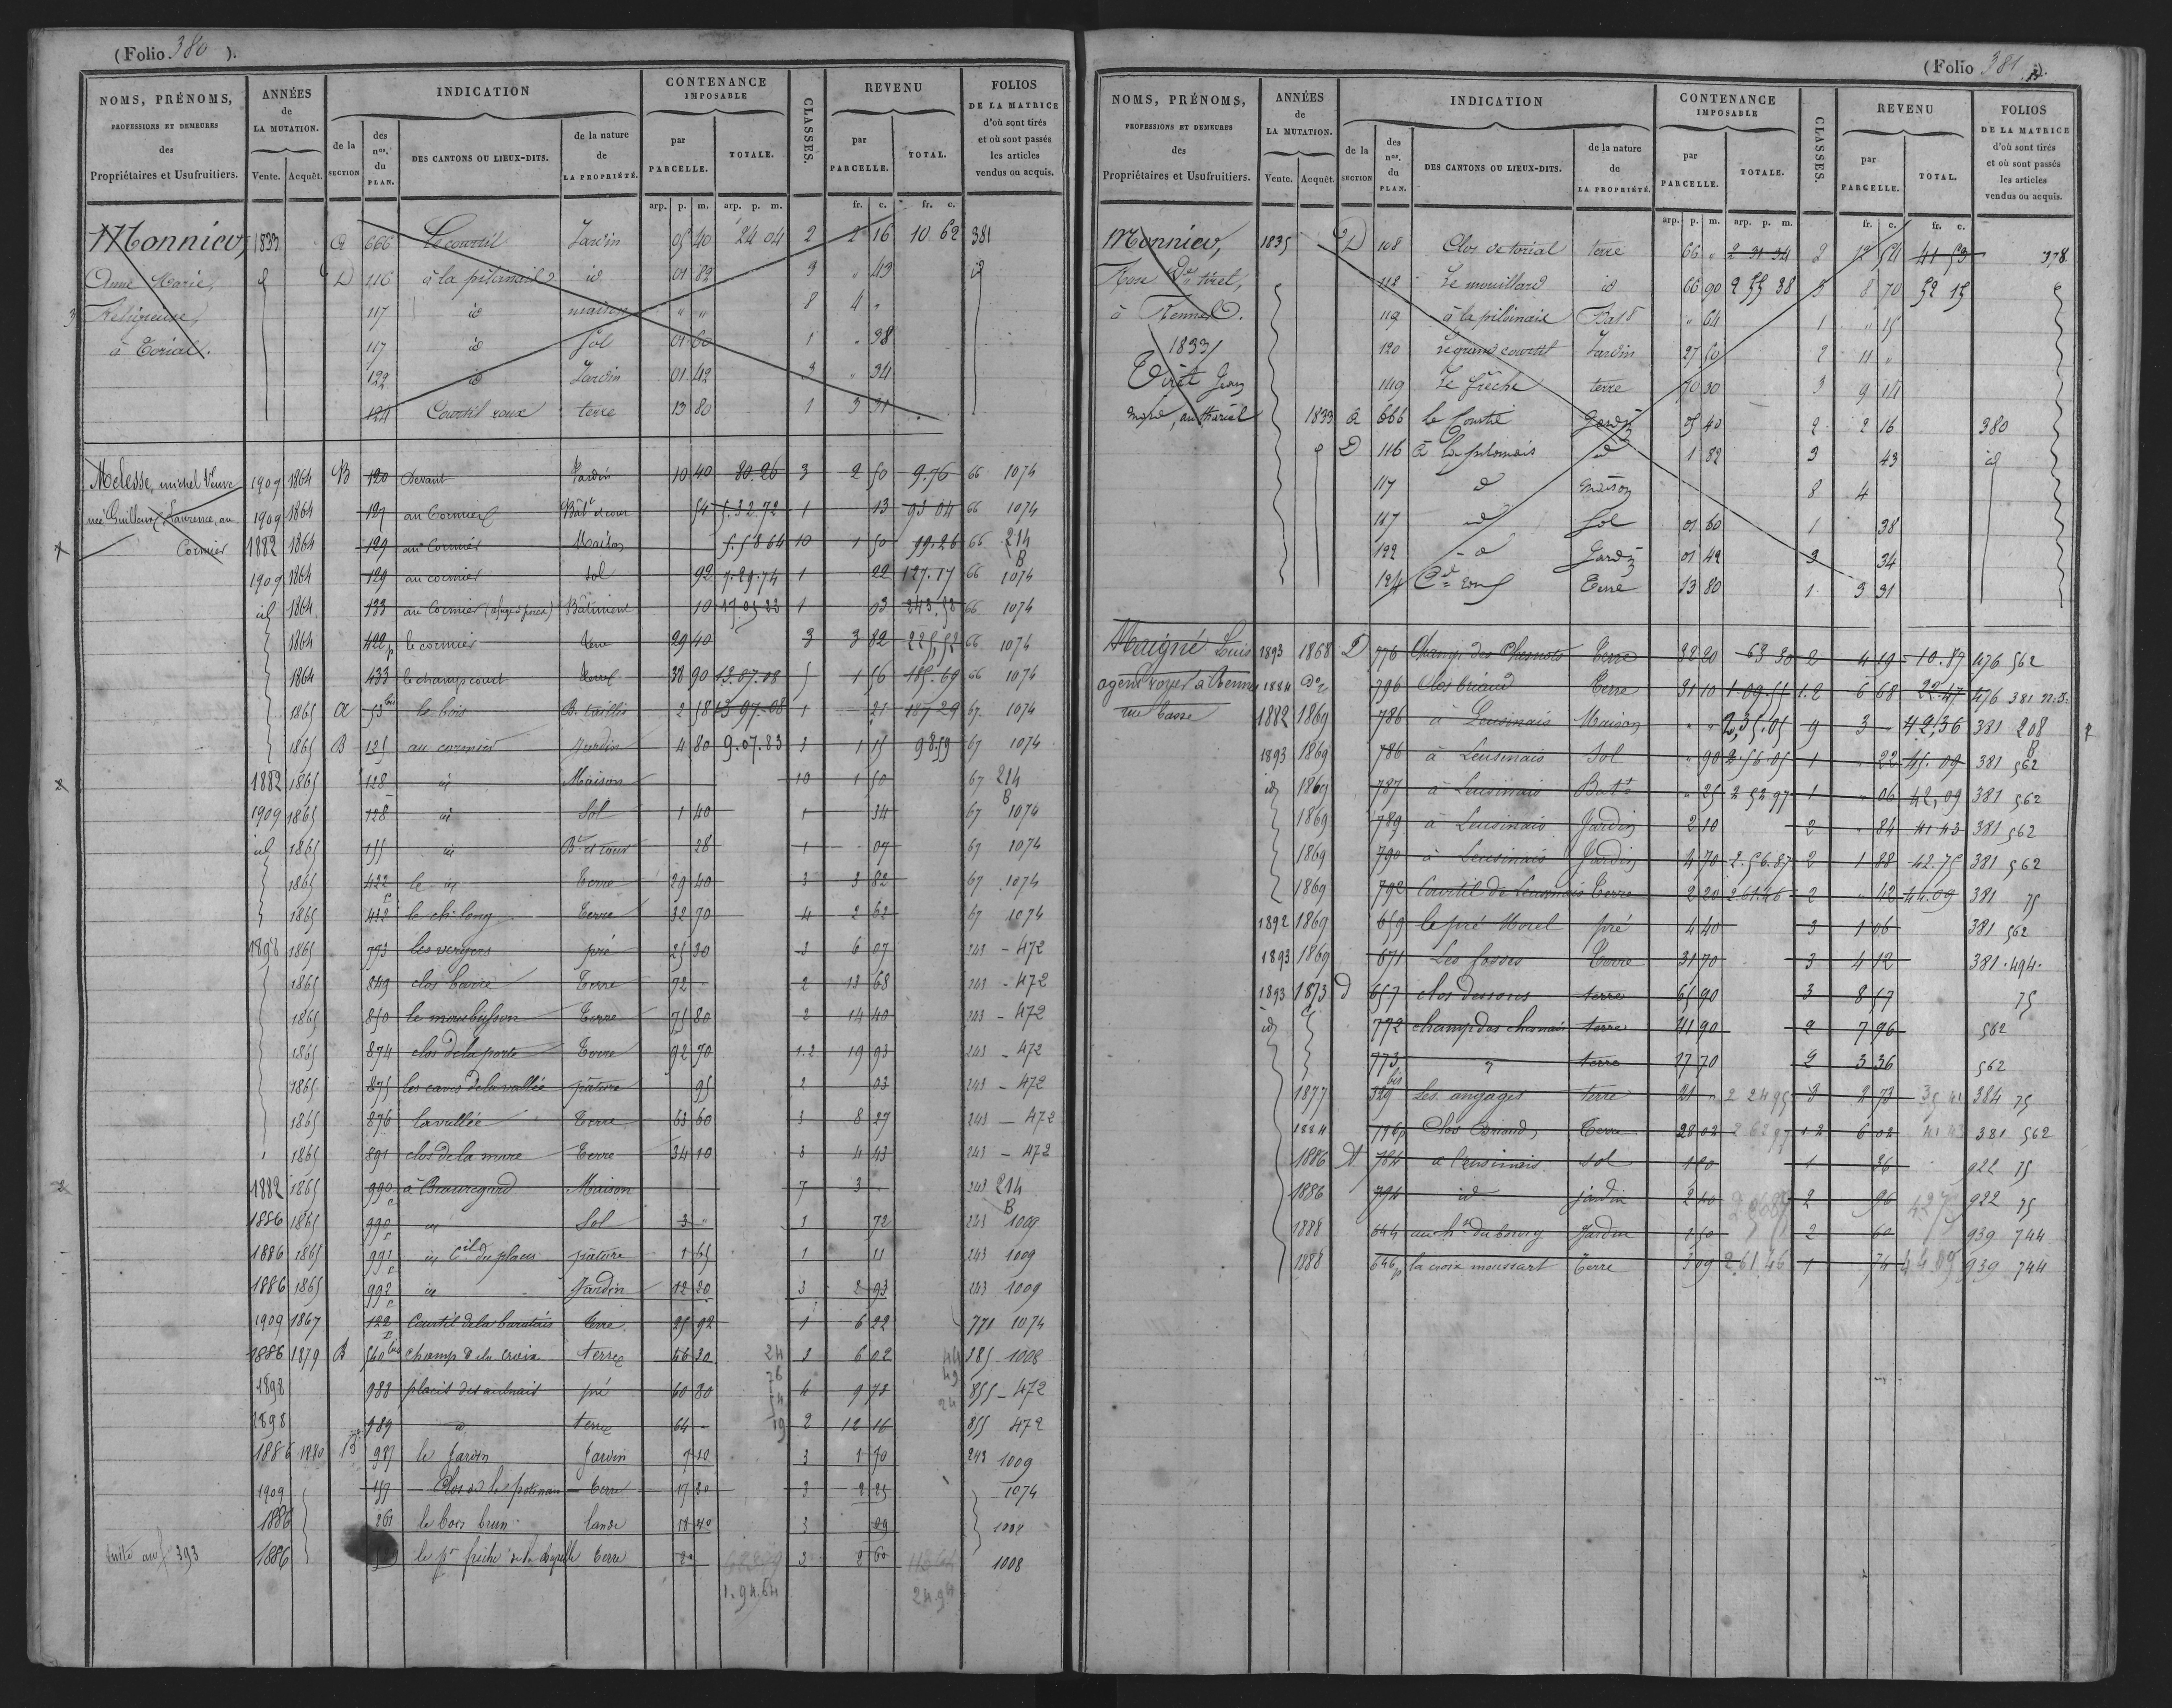 (Folio 380 ).
NOMS, PRÉNOMS, PROFESSIONS ET DEMEURES des Propriétaires et Usufruitiers.
ANNÉES de LA MUTATION. Vente. Acquêt.
INDICATION de la SECTION des nos. du PLAN. DES CANTONS OU LIEUX-DITS. de la nature de LA PROPRIÉTÉ.
CONTENANCE IMPOSABLE par PARCELLE. TOTALE.
CLASSES.
REVENU par PARCELLE. TOTAL.
FOLIOS DE LA MATRICE d'où sont tirés et où sont passés les articles vendus ou acquis.
arp. p. m. arp. p. m. fr. c. fr. c.
Monnier, 1833 a 666 Le courtil Jardin 05 40 24 04 2 2 16 10 62 381
Anne Marie, D 116 à la pilornais id 01 82 3 " 43 id
Religieuse, 117 id maison " " 8 4 "
à Corial. 117 id Sol 01 60 1 " 38
122 id Jardin 01 42 3 " 34
124 Courtil roux terre 13 80 1 3 31
Melesse, michel Veuve 1909 1864 B 120 Devant Jardin 10 40 30.26 3 2 50 9.76 66 1074
née Guilloux Laurence, au 1909 1864 127 au Cormier Bât et cour 54 5.32.72 1 13 93 04 66 1074
Cormier 1882 1864 129 au Cormier Maison 5.58 64 10 1 50 99.26 66 214 B
1909 1864 129 au cormier Sol 92 7.29.74 1 22 127.17 66 1074
id 1864 133 au Cormier Bâtiment 10 17.05 22 1 03 243,58 66 1074
1864 422 p le cormier terre 29 40 3 3 82 225,52 66 1074
1864 433 le champ court 38 90 13.07.08 5 1 56 185.69 66 1074
1865 a 53 bis le bois B. taillis 2 58 13 97.08 1 21 187 29 67 1074
1865 B 125 au cormier Jardin 4 80 9.07.83 3 1 15 98.59 67 1074
1882 1865 128 id Maison 10 1 50 67 214 B
1909 1865 128 id Sol 1 40 1 34 67 1074
id 1865 155 id Bt et cour 28 1 07 67 1074
1865 422 le id terre 29 40 3 3 82 67 1074
1865 432 le ch. long terre 32 70 4 2 62 67 1074
1898 1865 793 les vergers pré 25 30 3 6 07 243 - 472
1865 849 clos barre terre 72 - 2 13 68 243 - 472
1865 850 terre 75 80 2 14 40 243 - 472
1865 874 clos de la porte terre 92 70 1.2 19 93 243 - 472
1865 875 les caves de la vallée pâture 95 2 03 243 - 472
1865 876 la vallée terre 63 60 3 8 27 243 - 472
1865 891 clos de la mare terre 34 10 3 4 43 243 - 472
1882 1865 990 à Beauregard Maison 7 3 243 214 B
1886 1865 990 id Sol 3 " 1 72 243 1009
1886 1865 991 id pâture 1 65 1 11 243 1009
1886 1865 992 id Jardin 12 20 3 2 93 243 1009
1909 1867 122 Courtil de la terre 25 92 1 6 22 771 1074
1886 1879 B 540 bis champ de la croix terre 46 30 3 6 02 385 1008
1898 988 placis des aulnais pré 60 80 4 9 73 855 - 472
1898 989 id terre 64 - 2 12 16 855 472
1886 1880 B 987 le Jardin Jardin 7 10 3 1 70 243 1009
1909 157 Clos de terre 17 30 3 2 25 1074
1886 261 le bois brun lande 18 40 3 09
suite au fo 393 1886 le pt friche de la chapelle terre 20 3 2 60 1008
1.94.64 24.94
(Folio 381 ).
NOMS, PRÉNOMS, PROFESSIONS ET DEMEURES des Propriétaires et Usufruitiers.
ANNÉES de LA MUTATION. Vente. Acquêt.
INDICATION de la SECTION des nos. du PLAN. DES CANTONS OU LIEUX-DITS. de la nature de LA PROPRIÉTÉ.
CONTENANCE IMPOSABLE par PARCELLE. TOTALE.
CLASSES.
REVENU par PARCELLE. TOTAL.
FOLIOS DE LA MATRICE d'où sont tirés et où sont passés les articles vendus ou acquis.
arp. p. m. arp. p. m. fr. c. fr. c.
Monnier, 1835 D 108 Clos de torial terre 66 " 2 31 34 2 12 54 41 53 378
Rose Ve tiret, 112 Le mouillard id 66 90 2 55 38 3 8 70 52 15
à Rennes. 119 à la pilornais " 64 1 " 15
1833 120 le grand courtil Jardin 27 50 2 11 "
Tiret Jean 149 Le frèche terre 70 30 3 9 14
1833 a 666 le Courtil Jardin 05 40 2 2 16 380
D 116 à la pilornais id 1 82 3 43 id
117 id maison 8 4
117 id Sol 01 60 1 38
122 id Jardin 01 42 3 34
124 Terre 13 80 1 3 31
Maigné Louis 1893 1868 D 776 Champ des Chesnots terre 32 20 63 30 2 4 19 10.87 476 562
agent voyer à Rennes 1884 do 796 Clos briand terre 31 10 1.09.55 1.2 6 68 22.47 476 381 n.s.
rue basse 1882 1869 786 à Leusinais Maison " " 2,35.05 9 3 42,36 381 208 B
1893 1869 786 à Leusinais Sol " 90 2.56.05 1 " 22 45.09 381 562
id 1869 787 à Leusinais Batt " 25 2 52 97 1 " 06 42,09 381 562
1869 789 à Leusinais Jardin 2 10 2 " 84 41 43 381 562
1869 790 à Leusinais Jardin 4 70 2.56.87 2 1 88 42.75 381 562
1869 792 Courtil de Leusinais terre 2 20 2.61.46 2 " 42 44.09 381 75
1892 1869 659 le pré Morel pré 4 40 3 1 06 381 562
1893 1869 671 Les fosses terre 31 70 3 4 12 381 . 494 .
1893 1873 d 657 clos dessous terre 65 90 3 8 57 75
id 772 champ des chesnais terre 41 90 2 7 96 562
773 terre 17 70 2 3 36 562
1877 329 bis Les angages terre 21 " 2 24 95 3 2 73 35 41 384 75
1884 796 p Clos Briand terre 28 02 2 62 97 1 2 6 02 41 43 381 562
1886 D 784 à leusinais sol 1 50 1 36 922 75
1886 794 id jardin 2 40 2 96 42 75 922 75
1888 644 au ht du bourg Jardin 1 50 2 60 939 744
1888 646 p la croix moussart terre 3 09 2 61 46 1 74 44 09 939 744